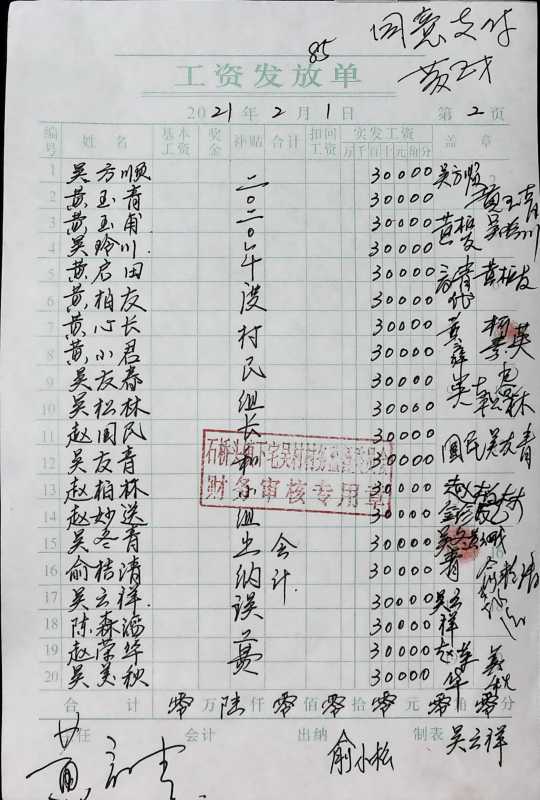 同意支付
85
工资发放单
2021年2月1日 第2页
编号 姓名 基本工资 奖金 补贴 合计 扣回工资 实发工资 盖章
万千百十元角分
1 吴方顺 30000 吴方顺
2 黄玉青 30000 黄玉青
3 黄玉甫 30000
4 吴玲川 30000 吴玲川
5 黄启田 30000
6 黄柏友 30000 黄柏友
7 黄心长 30000
8 黄小君 30000
9 吴友春 30000
10 吴松林 30000
11 赵国民 30000 国民
12 吴友青 30000 吴友青
13 赵柏林 30000
14 赵妙送 30000
15 吴冬青 30000 吴冬青
16 俞桔清 30000
17 吴云祥 30000 吴云祥
18 陈森海 30000
19 赵荣华 30000 赵荣华
20 吴美秋 30000 美秋
二〇二〇年度村民组长和小组出纳会计误工费
石桥头镇下宅吴村村务监督委员会
财务审核专用章
合计 零万陆仟零佰零拾零元零角零分
主任 会计 出纳 俞小松 制表 吴云祥